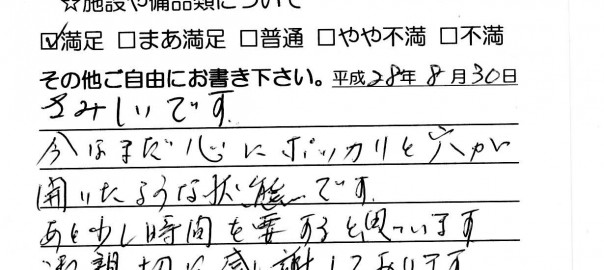 ☆施設や備品類について
☑満足 □まあ満足 □普通 □やや不満 □不満
その他ご自由にお書き下さい。平成28年8月30日
さみしいです。
今はまだ心にポッカリと穴が
開いたような状態です。
あと少し時間を要すると思っています
ご親切に感謝しております